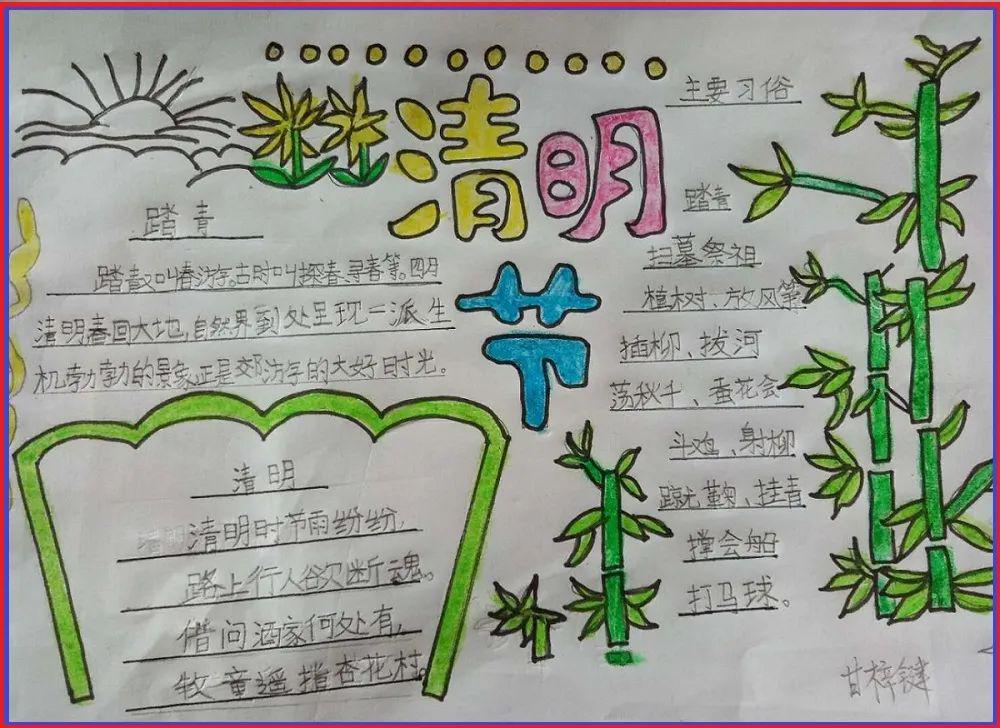 清明
节
踏青
踏青又叫春游。古时叫探春、寻春等。四月
清明春回大地,自然界到处呈现一派生
机勃勃的景象,正是郊游的大好时光。
清明
清明时节雨纷纷,
路上行人欲断魂。
借问酒家何处有,
牧童遥指杏花村。
主要习俗
踏青
扫墓祭祖
植树、放风筝
插柳、拔河
荡秋千、蚕花会
斗鸡、射柳
蹴鞠、挂青
撑会船
打马球。
甘梓键